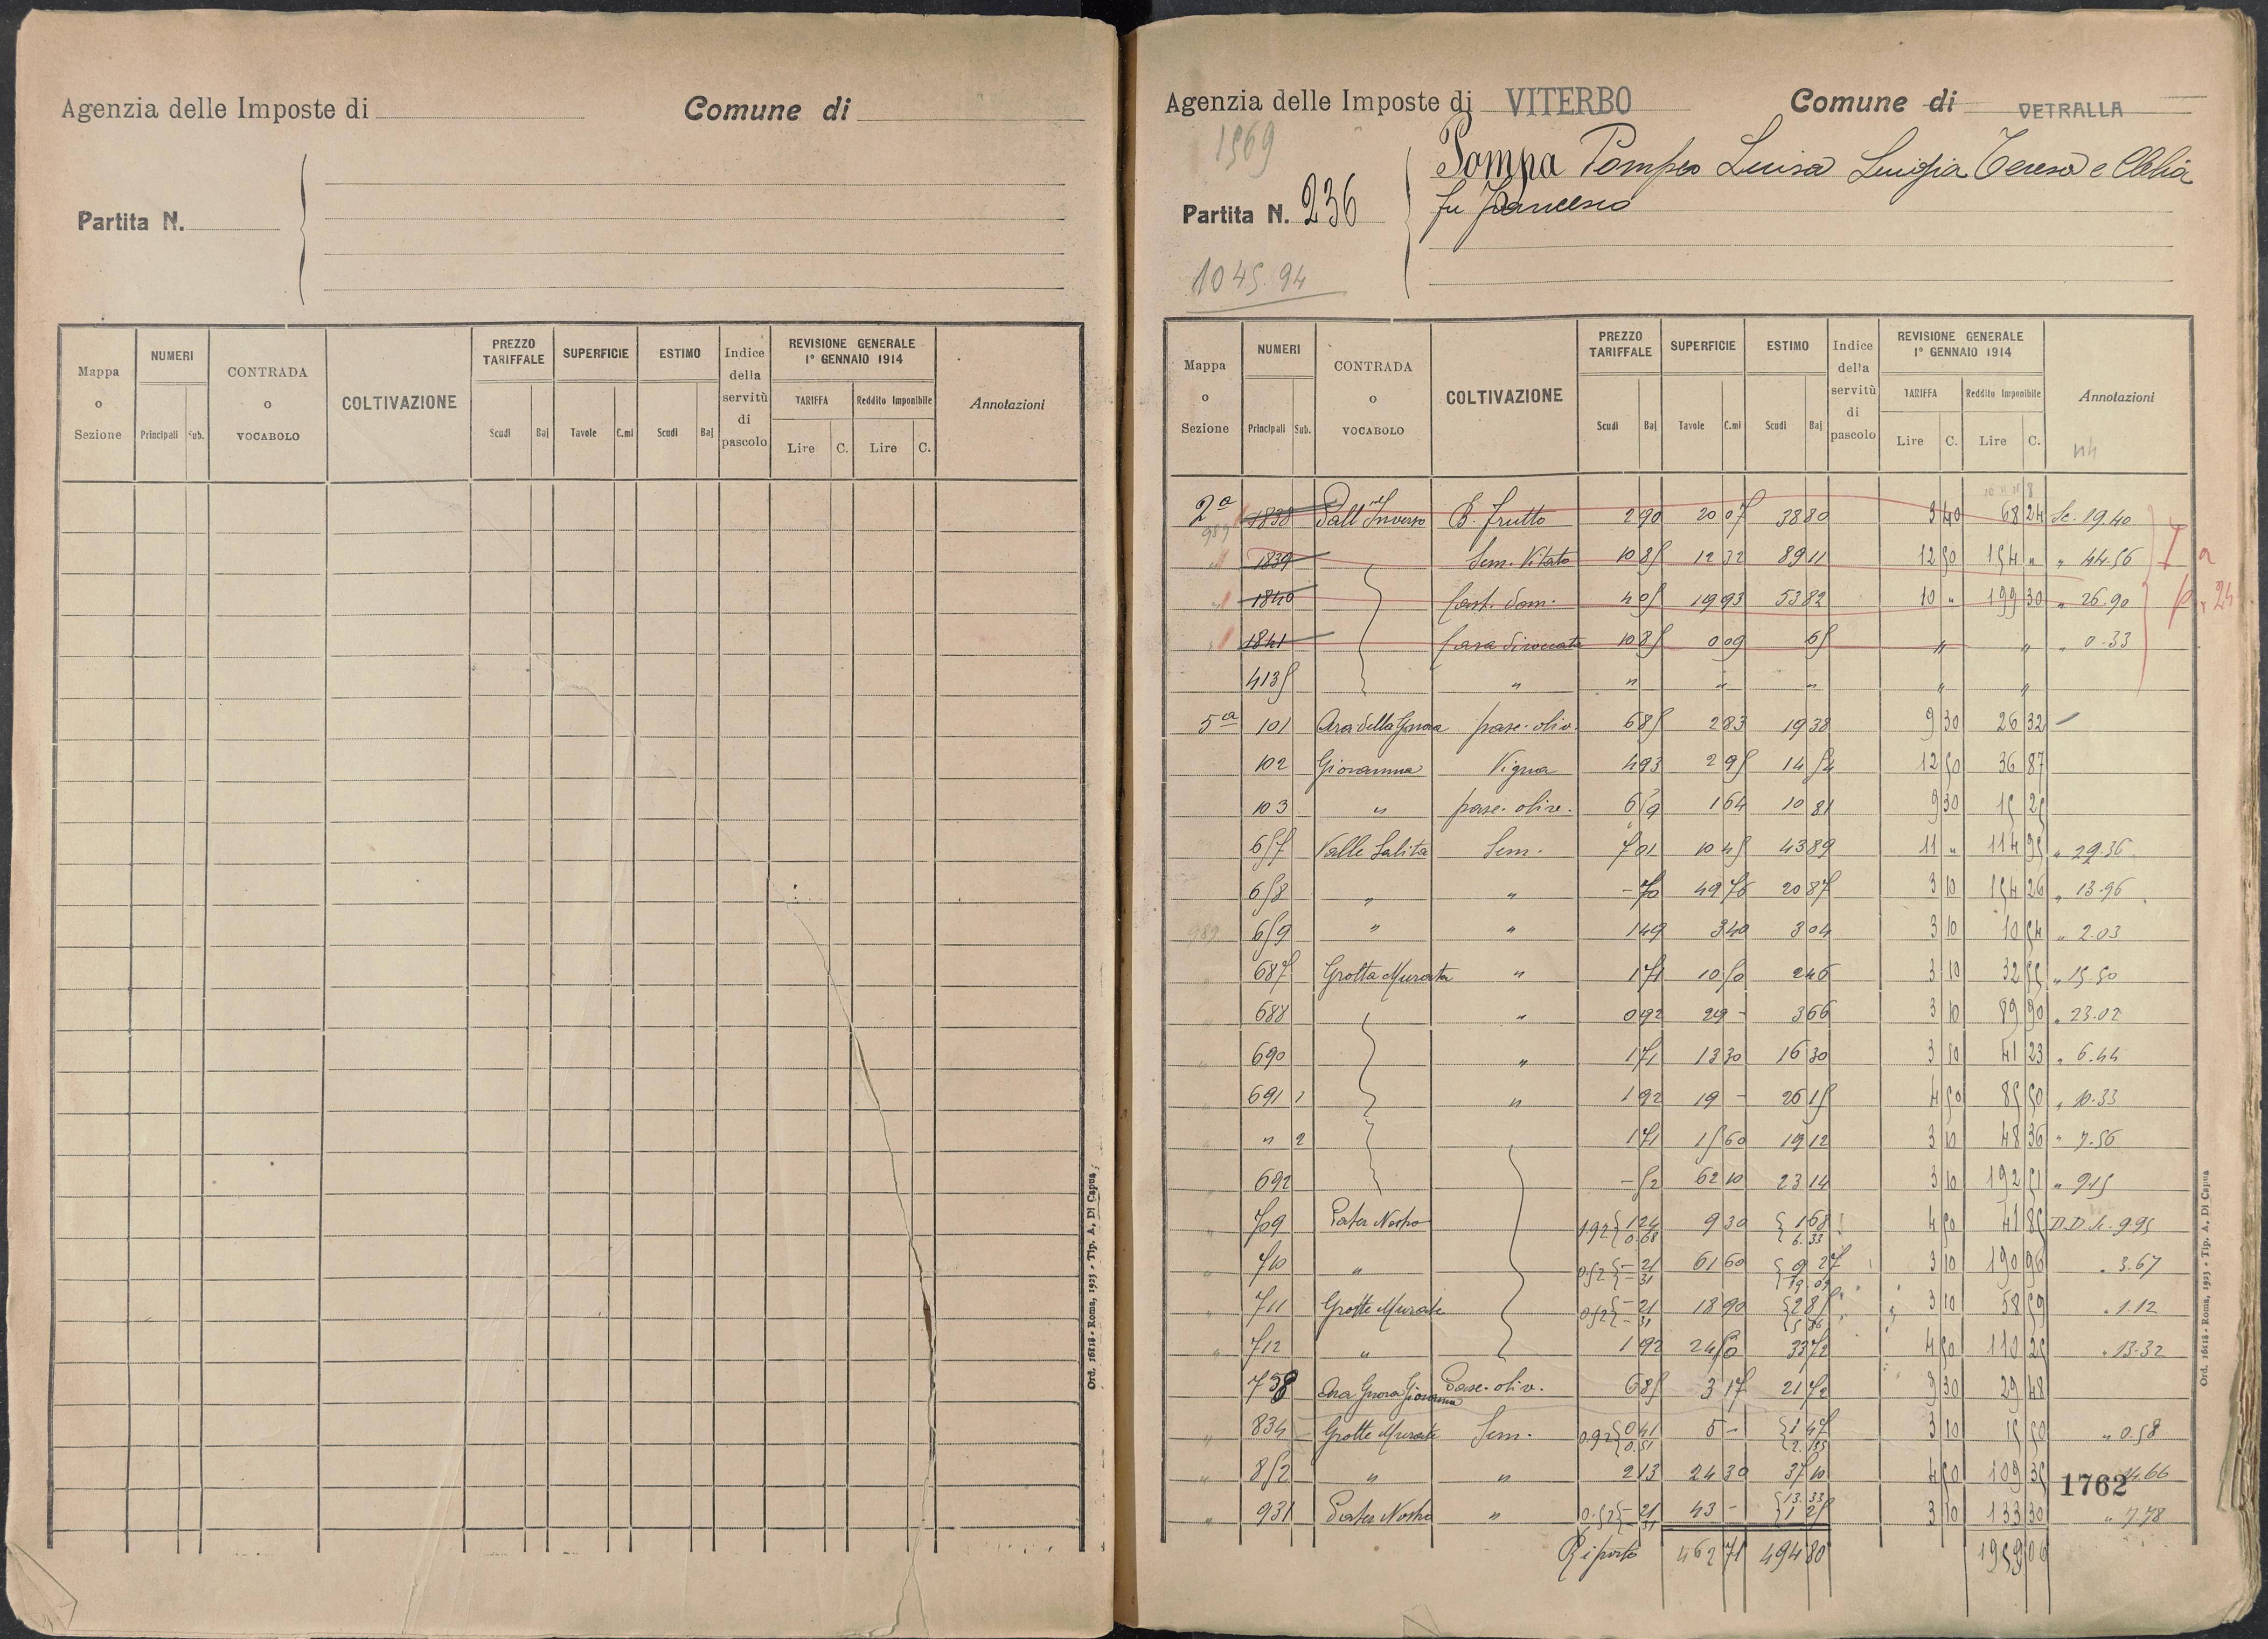 Agenzia delle Imposte di Comune di
Partita N.
Mappa o Sezione NUMERI Principali Sub. CONTRADA o VOCABOLO COLTIVAZIONE PREZZO TARIFFALE Scudi Baj SUPERFICIE Tavole C.mi ESTIMO Scudi Baj Indice della servitù di pascolo REVISIONE GENERALE 1° GENNAIO 1914 TARIFFA Lire C. Reddito Imponibile Lire C. Annotazioni
Ord. 16118 - Roma, 1923 - Tip. A. Di Capua
Agenzia delle Imposte di VITERBO Comune di VETRALLA
1569
Pompa Pompeo Luisa Luigia Teresa e Clelia
Partita N. 236 fu Francesco
1045.94
Mappa o Sezione NUMERI Principali Sub. CONTRADA o VOCABOLO COLTIVAZIONE PREZZO TARIFFALE Scudi Baj SUPERFICIE Tavole C.mi ESTIMO Scudi Baj Indice della servitù di pascolo REVISIONE GENERALE 1° GENNAIO 1914 TARIFFA Lire C. Reddito Imponibile Lire C. Annotazioni
2a 1838 Dall'Inverso B. frutto 2 90 20 07 38 80 3 40 68 24 Sc. 19.40
989
" 1839 Sem. Vitato 10 85 12 32 89 11 12 50 154 " " 44.56
" 1840 Cast. dom. 4 05 19 93 53 82 10 " 199 30 " 26.90
" 1841 Casa diroccata 10 85 0 09 65 " " " 0.33
4135 " " " " " "
5a 101 Ara della Gnora pasc. oliv. 6 85 2 83 19 38 9 30 26 32
102 Giovanna Vigna 4 93 2 95 14 54 12 50 36 87
103 " pasc. olive. 6 59 1 64 10 81 9 30 15 25
657 Valle Salita Sem. 7 01 10 45 43 89 11 " 114 95 " 29.36
658 " " - 70 49 76 20 87 3 10 154 26 " 13.96
989 659 " " 1 49 3 40 3 04 3 10 10 54 " 2.03
687 Grotta Murata " 1 71 10 50 2 46 3 10 32 55 " 15.50
688 " 0 92 29 - 3 66 3 10 89 90 " 23.02
690 " 1 71 13 30 16 30 3 10 41 23 " 6.44
691 1 " 1 92 19 - 26 15 4 50 85 50 " 10.33
" 2 1 71 15 60 19 12 3 10 48 36 " 7.56
692 - 52 62 10 23 14 3 10 192 51 " 9.15
709 Pater Nostro 1.92 1 24 0.68 9 30 1 68 6.33 4 50 41 85 D.D. Sc. 9.95
710 " 0.52 - 21 - 31 61 60 9 27 19.09 3 10 190 96 " 3.67
711 Grotte Murate 0.52 - 21 - 31 18 90 2 85 5 86 3 10 58 59 " 1.12
712 " 1 92 24 50 33 72 4 50 110 25 " 13.32
758 Ara Gnora Giovanna Pasc. oliv. 6 85 3 17 21 72 9 30 29 48
834 Grotte Murate Sem. 0.92 0 41 0.51 5 - 1 47 3 10 15 50 " 0.58
852 " " 2 13 24 30 37 10 4 50 109 35 14.66
1762
931 Pater Nostro " 0.52 - 21 31 43 - 13.33 1 25 3 10 133 30 " 7.78
Riporto 462 71 494 80 1959 06
Ord. 16118 - Roma, 1923 - Tip. A. Di Capua